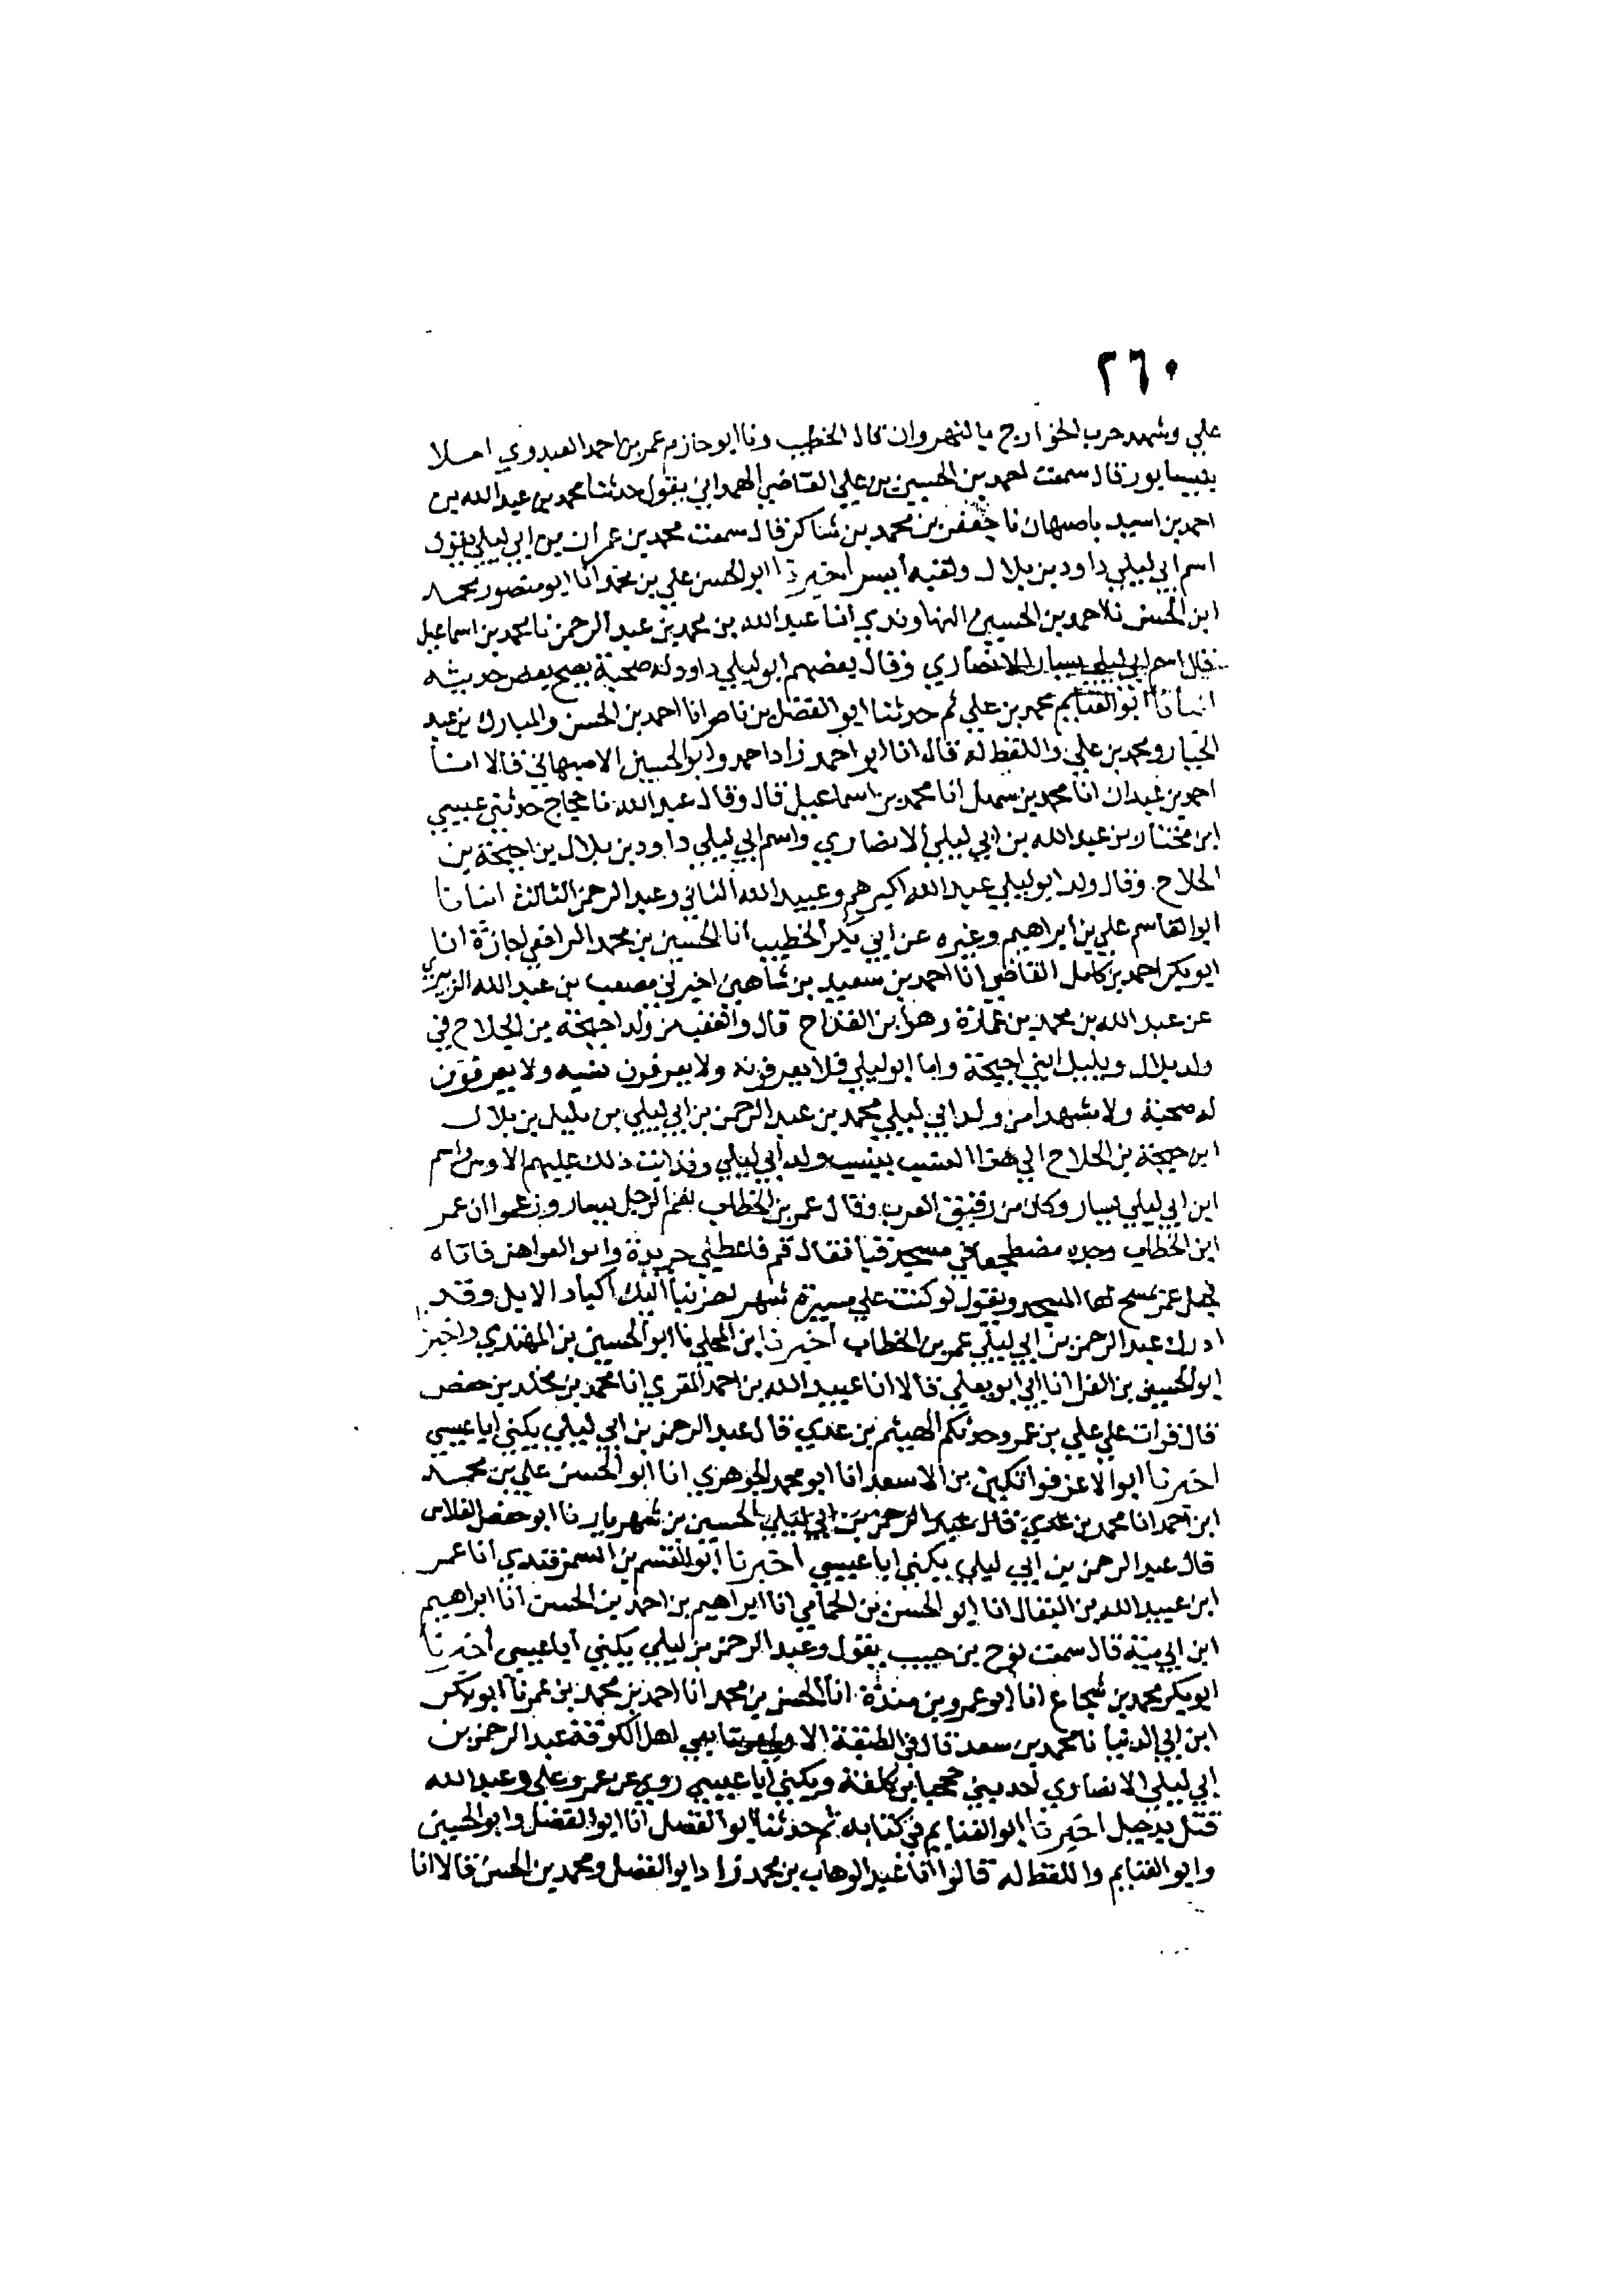 ٢٦٠
علي وشهد حرب الخوارج بالنهروان قال الخطيب ونا ابو حازم عمر بن احمد العبدوي املا
بنيسابور قال سمعت احمد بن الحسين بن علي القاضي الهمداني يقول حدثنا محمد بن عبد الله بن
احمد بن اسيد باصبهان نا جعفر بن محمد بن شاكر قال سمعت محمد بن عمران بن ابي ليلي يقول
اسم ابي ليلي داود بن بلال ولقبه أيسر اخبرنا ابو الحسن علي بن محمد انا ابو منصور محمد
ابن الحسن نا احمد بن الحسين النهاوندي انا عبد الله بن محمد بن عبد الرحمن نا محمد بن اسماعيل
قال اسم ابي ليلي يسار الانصاري وقال بعضهم ابو ليلي داود له صحبة يصح بعض حديثه
انبانا ابو الغنايم محمد بن علي ثم حدثنا ابو الفضل بن ناصر انا احمد بن الحسن والمبارك بن عبد
الجبار ومحمد بن علي واللفظ له قال انا ابو احمد زاد احمد وابو الحسين الاصبهاني قالا انبا
احمد بن عبدان انا محمد بن سهل انا محمد بن اسماعيل قال وقال عبد الله نا حجاج حدثني عيسي
ابن مختار بن عبد الله بن ابي ليلي الانصاري واسم ابي ليلي داود بن بلال بن احيحة بن
الجلاح. وقال ولد ابو ليلي عبد الله اكبرهم وعبيد الله الثاني وعبد الرحمن الثالث انبانا
ابو القاسم علي بن ابراهيم وغيره عن ابي بكر الخطيب انا الحسين بن محمد الرافعي اجازة انا
ابو بكر احمد بن كامل القاضي انا احمد بن سعيد بن شاهين اخبرني مصعب بن عبد الله الزبيري
عن عبد الله بن محمد بن عمارة وهو ابن القداح قال والعقب من ولد احيحة بن الجلاح في
ولد بلال وبليل ابني احيحة واما ابو ليلي فلا يعرفونه ولا يعرفون نسبه ولا يعرفون
له صحبة ولا مشهدا من ولد ابي ليلي محمد بن عبد الرحمن بن ابي ليلي بن بليل بن بلال
ابن حيحة بن الجلاح الي هذا النسب ينسب ولد ابي ليلي وقد ذلك عليهم الاوس واسم
ابن ابي ليلي يسار وكان من رقيق العرب وقال عمر بن الخطاب نعم الرجل يسار وزعموا ان عمر
ابن الخطاب وجده مضطجعا في مسجد قبا فقال قم فاعطني جريدة وابو العواهن فاتاه
فجعل عمر يمسح لها المسجد ويقول لو كنت علي مسيرة شهر لضربنا اليك اكباد الابل وقد
ادرك عبد الرحمن بن ابي ليلي عمر بن الخطاب اخبرنا ابن المجلي نا ابو الحسين بن المهتدي واخبرنا
ابو الحسين بن الفرا انا ابي ابو يعلي قالا انا عبيد الله بن احمد المقري انا محمد بن مخلد بن حفص
قال قرات علي علي بن عمرو حدثكم الهيثم بن عدي قال عبد الرحمن بن ابي ليلي يكني ابا عيسي
اخبرنا ابو الاعز قراتكين بن الاسعد انا ابو محمد الجوهري انا ابو الحسن علي بن محمد
ابن احمد انا محمد بن الحسين بن شهريار نا ابو حفص الفلاس
قال عبد الرحمن بن ابي ليلي يكني ابا عيسي اخبرنا ابو القسم بن السمرقندي انا عمر
ابن عبيد الله بن البقال انا ابو الحسن بن الحمامي انا ابراهيم بن احمد بن الحسن انا ابراهيم
ابن ابي قال سمعت نوح بن حبيب يقول وعبد الرحمن بن ليلي يكني ابا عيسي اخبرنا
ابو بكر محمد بن شجاع انا ابو عمرو بن مندة انا الحسن بن محمد انا احمد بن محمد بن عمر نا ابو بكر
ابن ابي الدنيا نا محمد بن سعد قال في الطبقة الاولي اهل الكوفة عبد الرحمن بن
ابي ليلي الانصاري احد بني جحجبا بن كلفة ويكني ابا عيسي روي عن عمر وعلي وعبد الله
قتل بدجيل اخبرنا ابو الغنايم في كتابه ثم حدثنا ابو الفضل انا ابو الفضل وابو الحسين
وابو الغنايم واللفظ له قالوا انا عبد الوهاب بن محمد زاد ابو الفضل ومحمد بن الحسن قالا انا